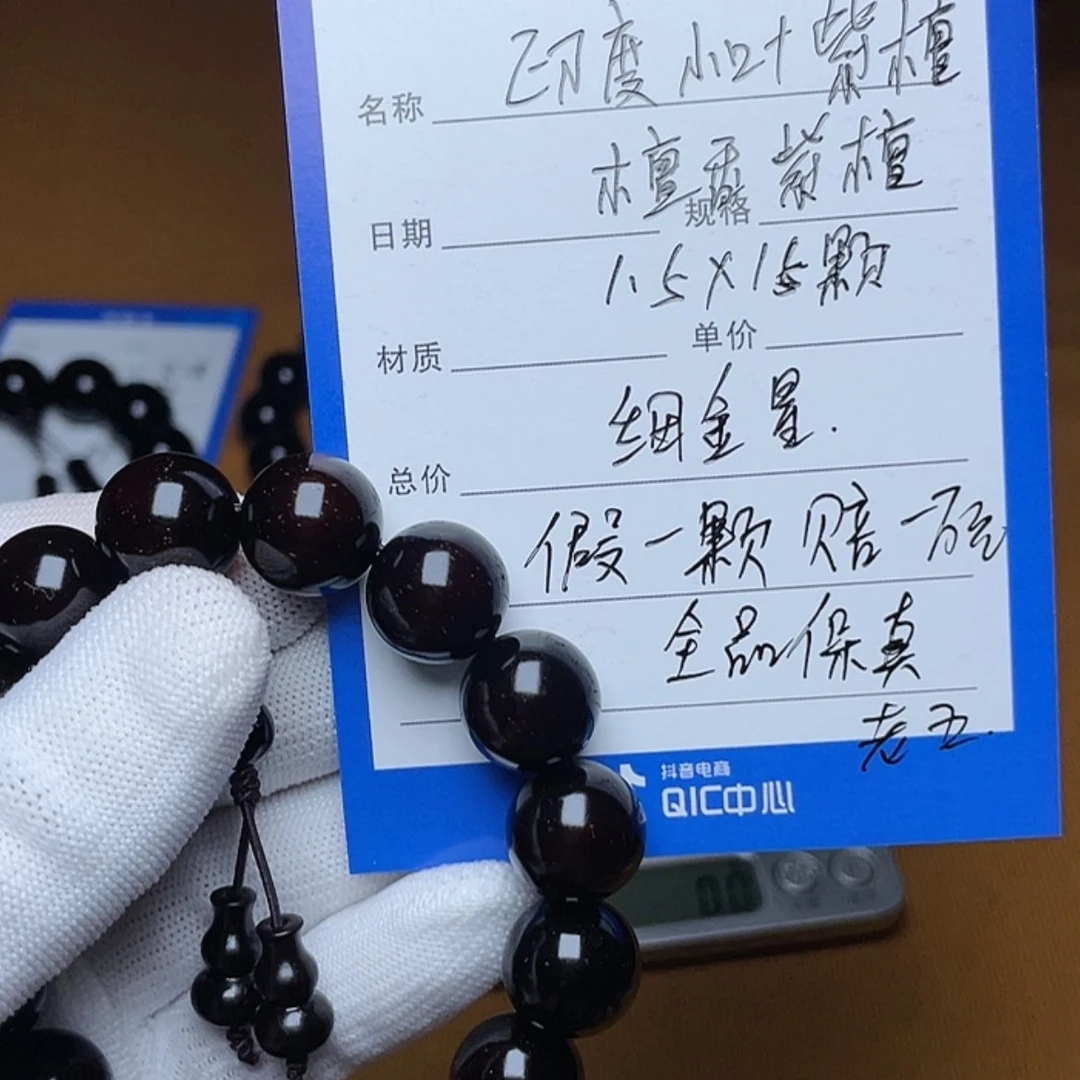 印度小叶紫檀
名称
檀香紫檀
日期 规格
1.5X15颗
材质 单价
细金星.
总价
假一颗赔一万元
全品保真
老五.
抖音电商
QIC中心
0.0